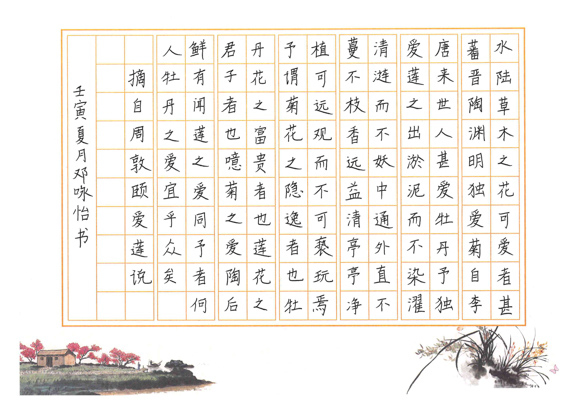 水陆草木之花可爱者甚
蕃晋陶渊明独爱菊自李
唐来世人甚爱牡丹予独
爱莲之出淤泥而不染濯
清涟而不妖中通外直不
蔓不枝香远益清亭亭净
植可远观而不可亵玩焉
予谓菊花之隐逸者也牡
丹花之富贵者也莲花之
君子者也噫菊之爱陶后
鲜有闻莲之爱同予者何
人牡丹之爱宜乎众矣
摘自周敦颐爱莲说
壬寅夏月邓咏怡书